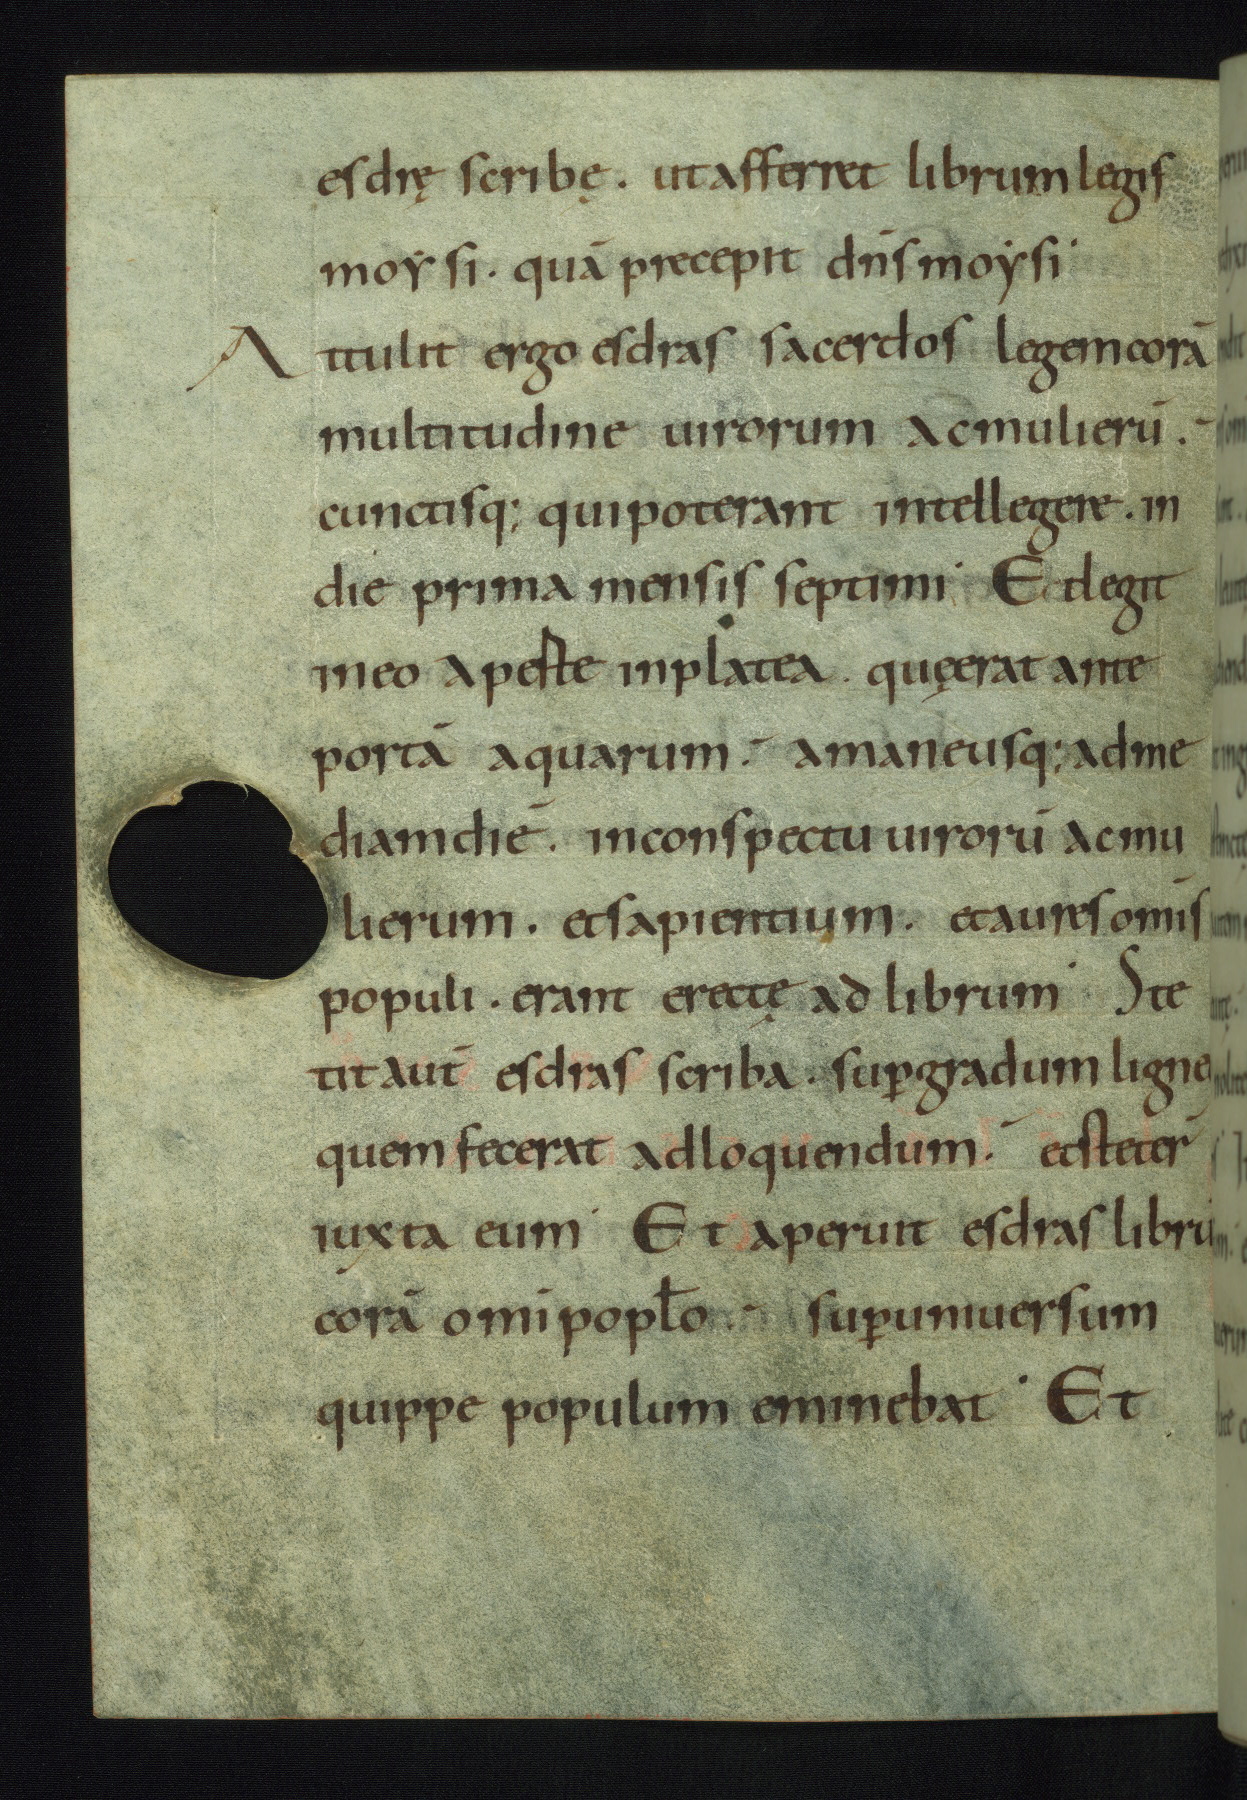 esdrę scribę. ut afferret librum legis
moẏsi. quā precepit dn̄s moẏsi
Attulit ergo esdras sacerdos legem corā
multitudine uirorum ac mulierū.
cunctisq; qui poterant intellegere. in
die prima mensis septimi Et legit
in eo apeste in platea. quę erat ante
portā aquarum. a mane usq; ad me
diam diē. in conspectu uirorū ac mu
lierum. et sapientium. et aures om̄is
populi. erant erectę ad librum Ste
tit aut̄ esdras scriba. suꝑ gradum ligne
quem fecerat ad loquendum. et steter̄
iuxta eum Et aperuit esdras librū
corā om̄i popl̄o. suꝑ uniuersum
quippe populum eminebat Et